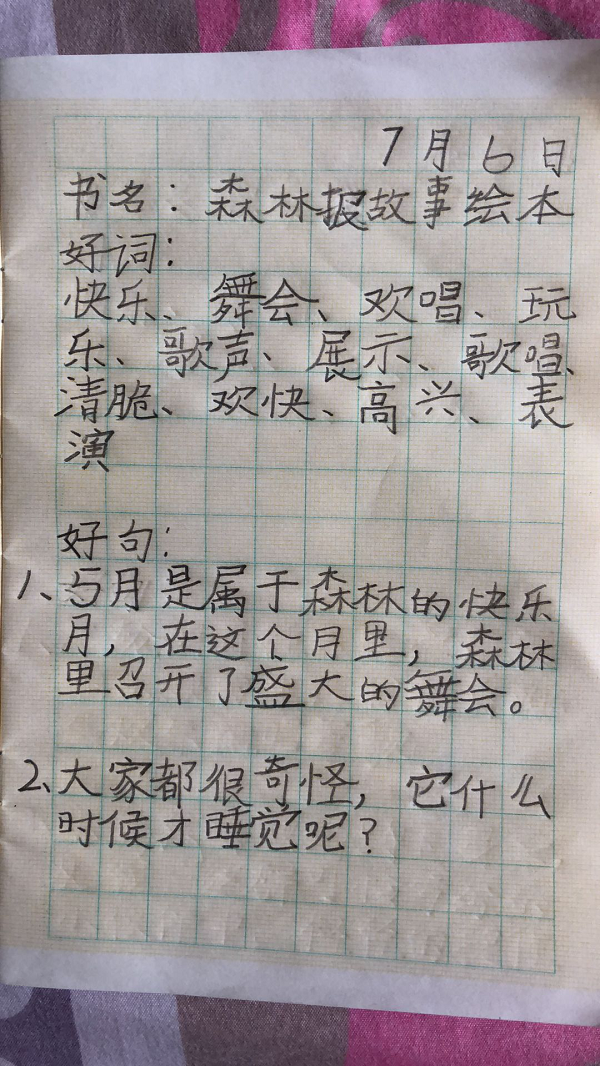 7月6日
书名：森林报故事绘本
好词：
快乐、舞会、欢唱、玩
乐、歌声、展示、歌唱、
清脆、欢快、高兴、表
演
好句：
1、5月是属于森林的快乐
月，在这个月里，森林
里召开了盛大的舞会。
2、大家都很奇怪，它什么
时候才睡觉呢？